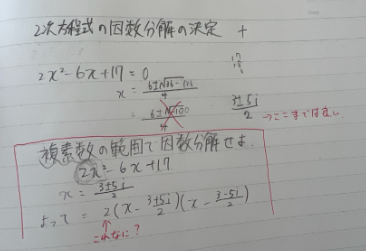 2次方程式の因数分解の決定
2x²-6x+17=0
x = 6±√36-136/4
= 6±√-100/4
3±5i/2 →ここまでは良い
複素数の範囲で因数分解せよ
2x²-6x+17
x = 3±5i/2
よって = 2(x - 3+5i/2)(x - 3-5i/2)
これなに?